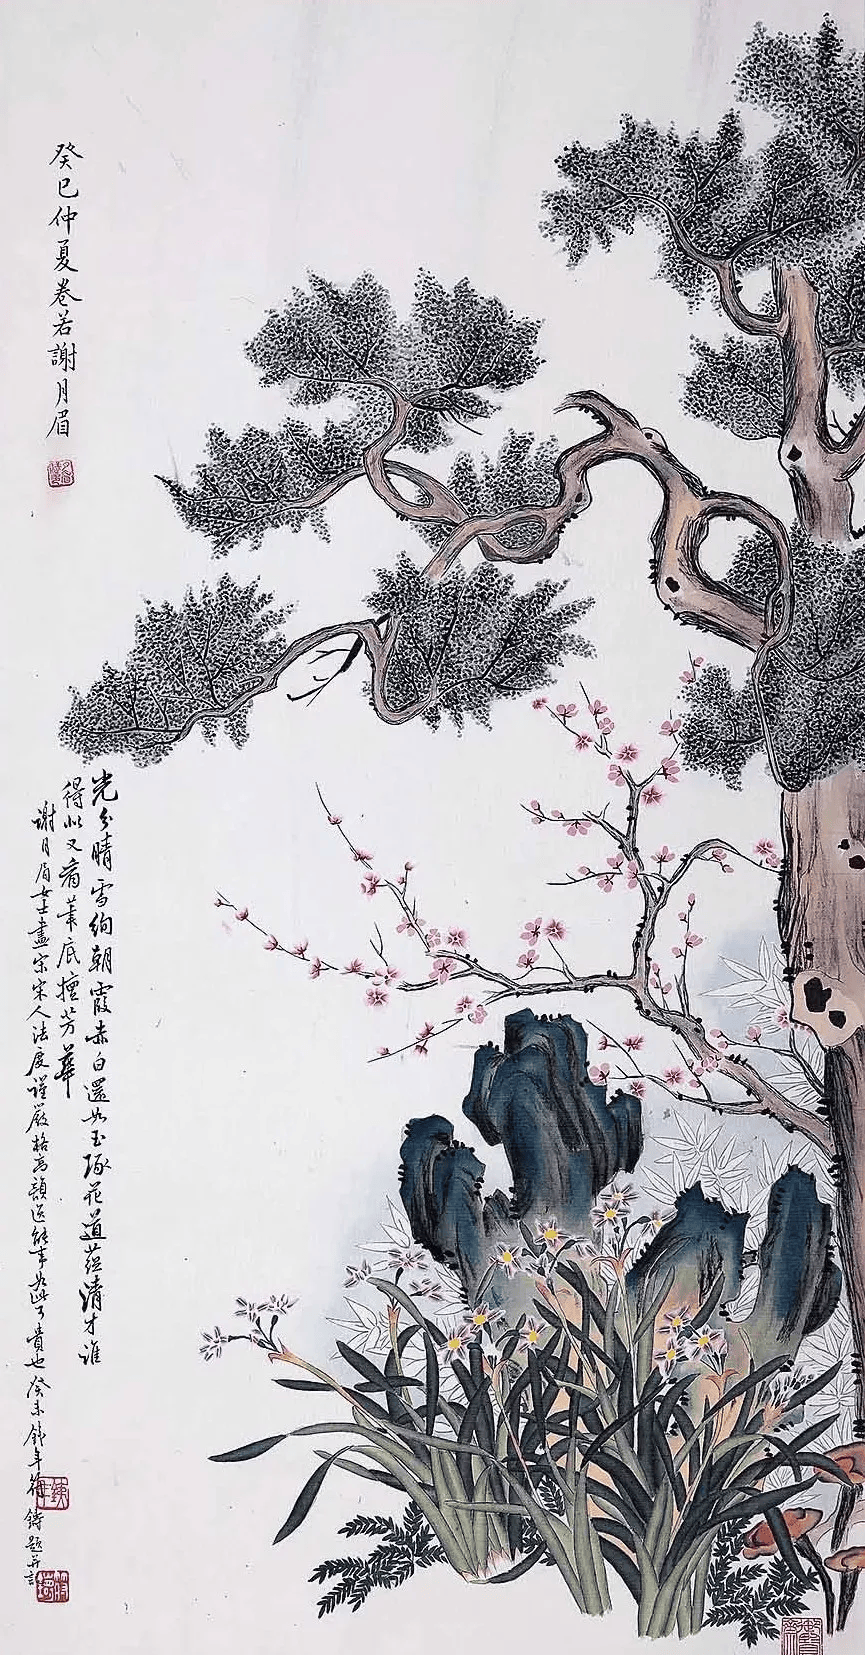 癸巳仲夏卷若謝月眉
光分晴雪絢朝霞赤白還如玉琢花道蘊清才誰
得似又看筆底擅芳華
謝月眉女士畫宗宋人法度謹嚴格高韻逸能事如此可貴也癸未鐵年符鑄題并記